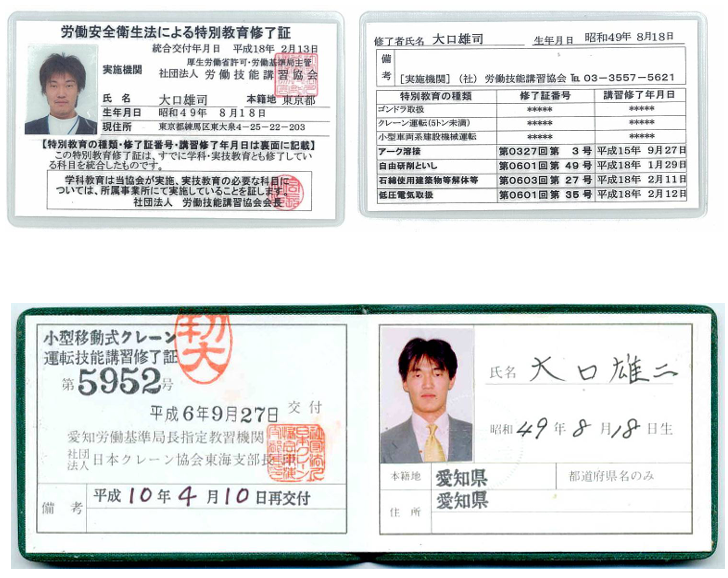 労働安全衛生法による特別教育修了証
統合交付年月日 平成18年 2月13日
実施機関 厚生労働省許可・労働基準局主管
社団法人 労働技能講習協会
氏名 大口雄司 本籍地 東京都
生年月日 昭和49年 8月18日
現住所 東京都練馬区東大泉4-25-22-203
【特別教育の種類・修了証番号・講習修了年月日は裏面に記載】
この特別教育修了証は、すでに学科・実技教育とも修了してい
る科目を統合したものです。
学科教育は当協会が実施、実技教育の必要な科目に
ついては、所属事業所にて実施していることを証します。
社団法人 労働技能講習協会会長
修了者氏名 大口雄司 生年月日 昭和49年 8月18日
備考 [実施機関] (社) 労働技能講習協会 ℡ 03-3557-5621
特別教育の種類 修了証番号 講習修了年月日
ゴンドラ取扱 ***** *****
クレーン運転(5トン未満) ***** *****
小型車両系建設機械運転 ***** *****
アーク溶接 第0327回第 3号 平成15年 9月27日
自由研削といし 第0601回第 49号 平成18年 1月29日
石綿使用建築物等解体等 第0603回第 27号 平成18年 2月11日
低圧電気取扱 第0601回第 35号 平成18年 2月12日
小型移動式クレーン
運転技能講習修了証
第5952号
平成6年9月27日 交付
愛知労働基準局長指定教習機関
社団法人 日本クレーン協会東海支部長
備考 平成10年4月10日再交付
氏名 大口雄二
昭和49年8月18日生
本籍地 愛知県 都道府県名のみ
住所 愛知県